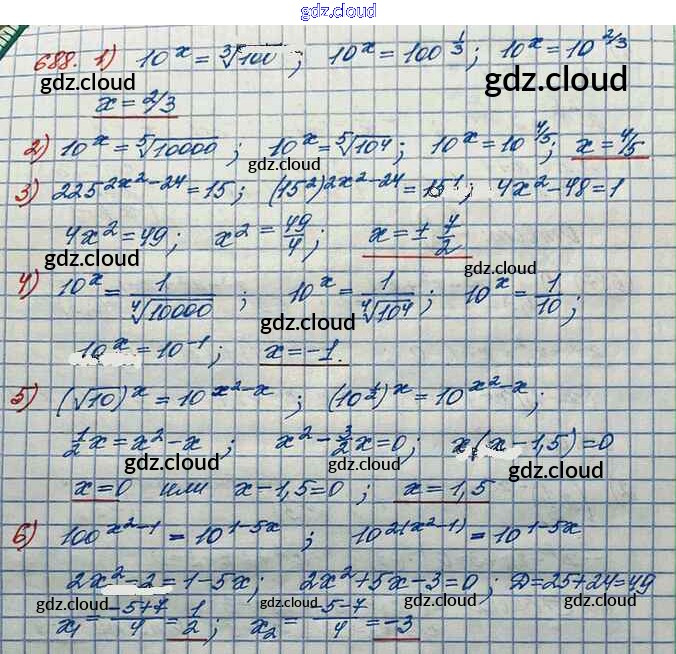 gdz.cloud
688. 1) 10^x = ∛100 ; 10^x = 100^(1/3) ; 10^x = 10^(2/3)
gdz.cloud gdz.cloud
x = 2/3
2) 10^x = ⁵√10000 ; 10^x = ⁵√10⁴ ; 10^x = 10^(4/5) ; x = 4/5
gdz.cloud
3) 225^(2x²-24) = 15 ; (15²)^(2x²-24) = 15¹ ; 4x² - 48 = 1
gdz.cloud gdz.cloud
4x² = 49 ; x² = 49/4 ; x = ± 7/2
gdz.cloud gdz.cloud
4) 10^x = 1/⁴√10000 ; 10^x = 1/⁴√10⁴ ; 10^x = 1/10 ;
gdz.cloud
10^x = 10^(-1) ; x = -1.
5) (√10)^x = 10^(x²-x) ; (10^(1/2))^x = 10^(x²-x) ;
½x = x² - x ; x² - 3/2 x = 0 ; x (x - 1,5) = 0
gdz.cloud gdz.cloud gdz.cloud
x = 0 или x - 1,5 = 0 ; x = 1,5
6) 100^(x²-1) = 10^(1-5x) ; 10^(2(x²-1)) = 10^(1-5x)
2x² - 2 = 1 - 5x ; 2x² + 5x - 3 = 0 ; D = 25 + 24 = 49
gdz.cloud gdz.cloud gdz.cloud
x₁ = (-5+7)/4 = 1/2 ; x₂ = (-5-7)/4 = -3